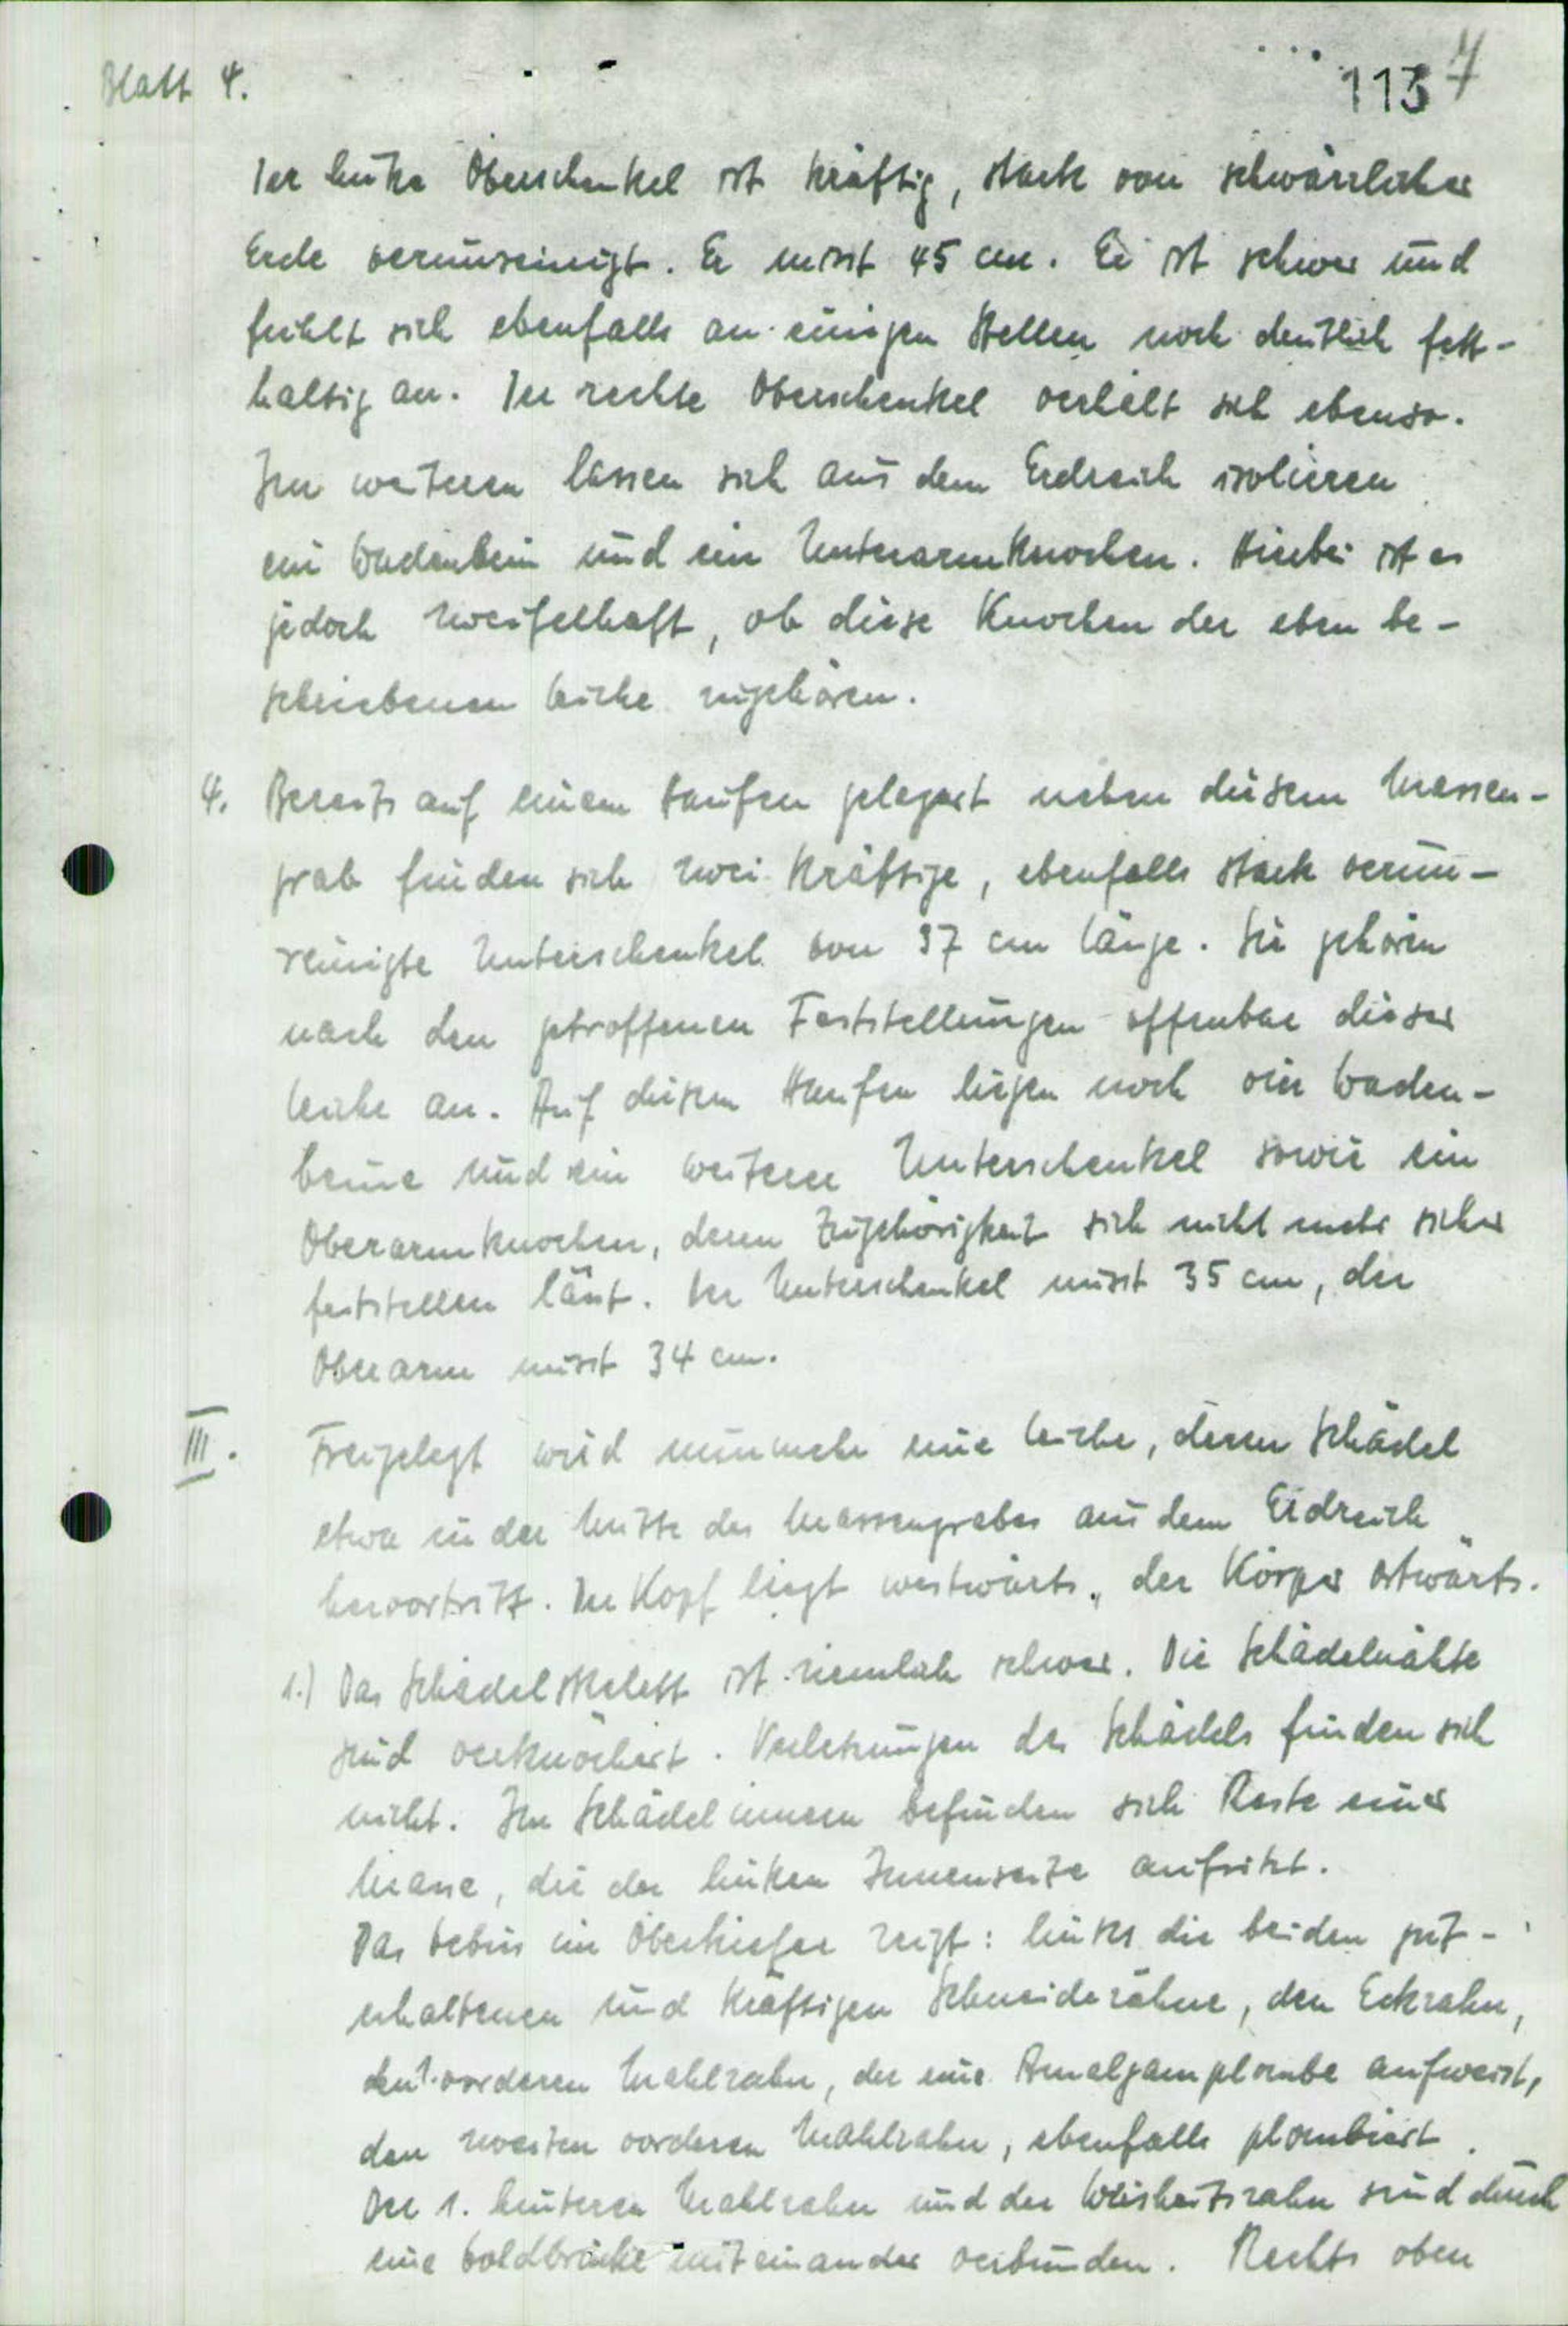 Blatt 4.
113 7
Der linke Oberschenkel ist kräftig, stark von schwärzlicher
Erde verunreinigt. Er misst 45 cm. Er ist schwer und
fühlt sich ebenfalls an einigen Stellen noch deutlich fett-
haltig an. Der rechte Oberschenkel verhält sich ebenso.
Im weiteren lassen sich aus dem Erdreich isolieren
ein Wadenbein und ein Unterarmknochen. Hierbei ist es
jedoch zweifelhaft, ob diese Knochen der eben be-
schriebenen Leiche zugehören.
4. Bereits auf einem Haufen gelagert neben diesem Massen-
grab finden sich zwei kräftige, ebenfalls stark verun-
reinigte Unterschenkel von 37 cm Länge. Sie gehören
nach den getroffenen Feststellungen offenbar dieser
Leiche an. Auf diesem Haufen liegen noch vier Waden-
beine und ein weiterer Unterschenkel sowie ein
Oberarmknochen, deren Zugehörigkeit sich nicht mehr sicher
feststellen lässt. Der Unterschenkel misst 35 cm, der
Oberarm misst 34 cm.
III. Freigelegt wird nunmehr eine Leiche, deren Schädel
etwa in der Mitte des Massengrabes aus dem Erdreich
hervortritt. Der Kopf liegt westwärts, der Körper ostwärts.
1.) Das Schädelskelett ist ziemlich schwer. Die Schädelnähte
sind verknöchert. Verletzungen des Schädels finden sich
nicht. Im Schädelinnern befinden sich Reste einer
Masse, die der linken Innenseite aufsitzt.
Das Gebiss im Oberkiefer zeigt: links die beiden gut-
erhaltenen und kräftigen Schneidezähne, den Eckzahn,
den 1. vorderen Mahlzahn, der eine Amalgamplombe aufweist,
den zweiten vorderen Mahlzahn, ebenfalls plombiert.
Der 1. hintere Mahlzahn und der Weisheitszahn sind durch
eine Goldbrücke miteinander verbunden. Rechts oben